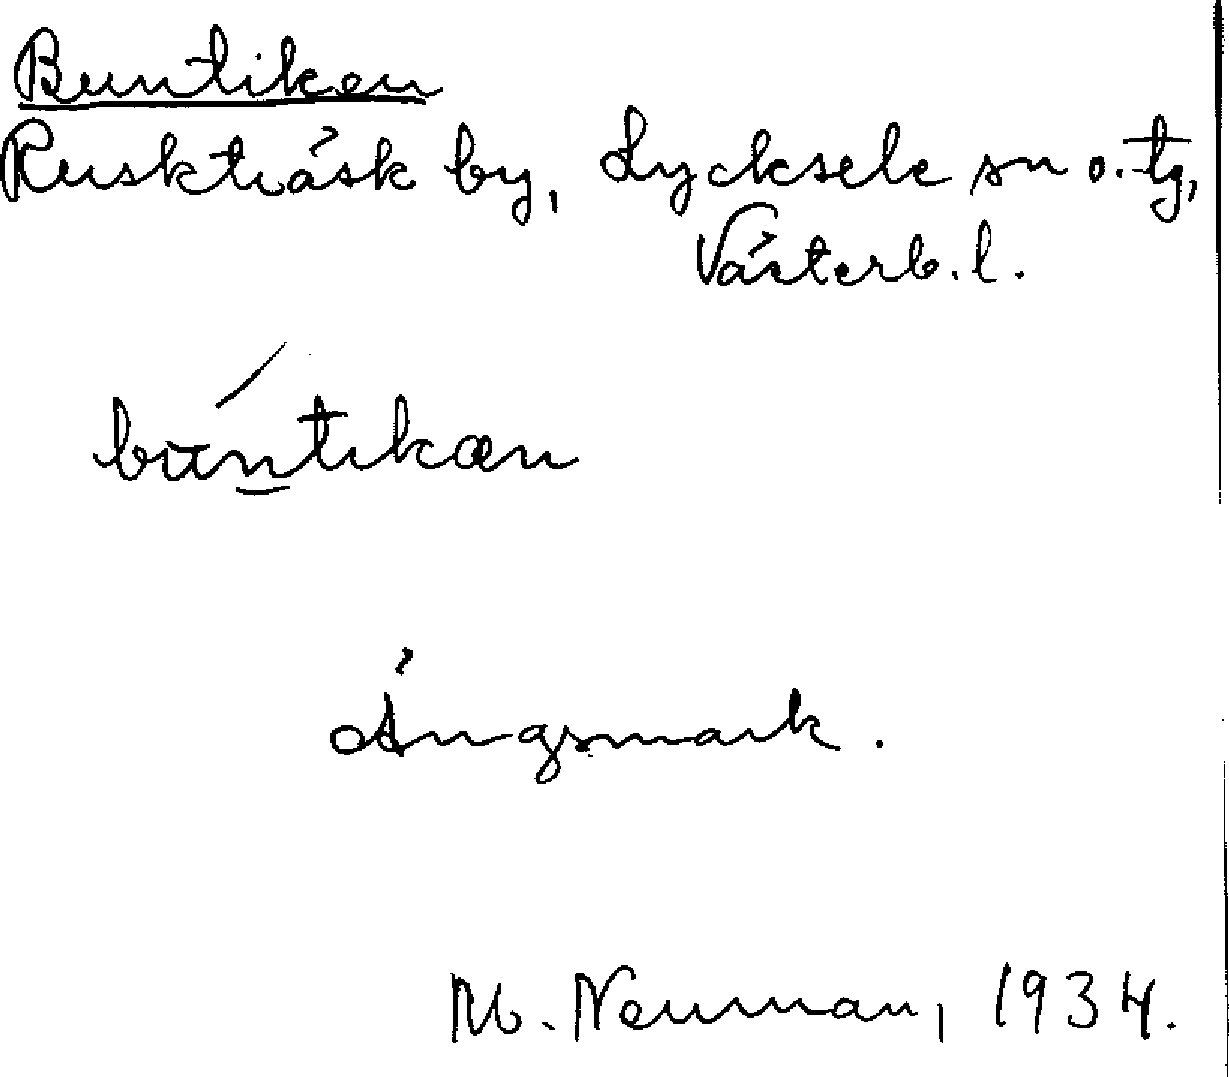 Buntiken
Ruskträsk by, Lycksele sn o. tg,
Västerb. l.
buntikæn
Ängsmark.
M. Neuman, 1934.